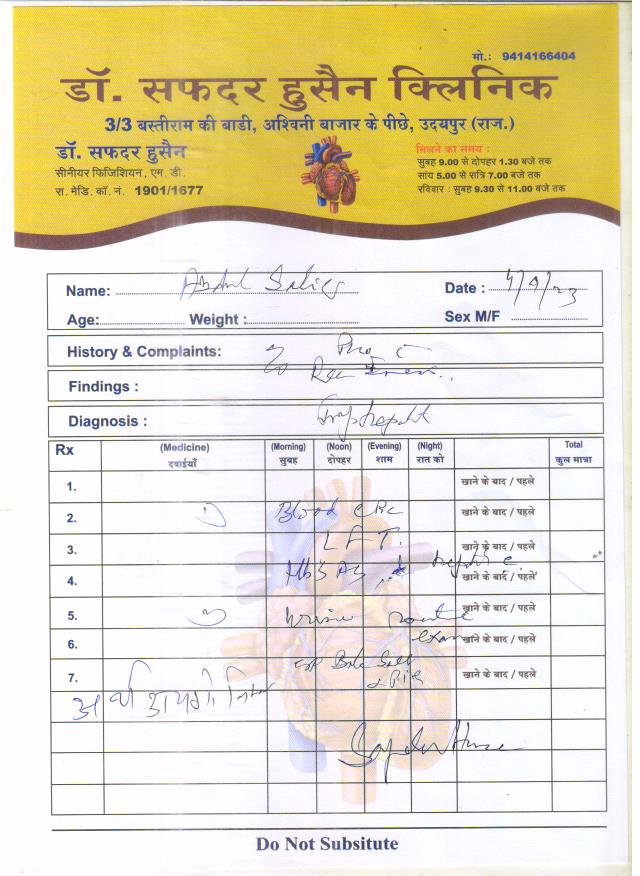 मो.: 9414166404
डॉ. सफदर हुसैन क्लिनिक
3/3 बस्तीराम की बाडी, अश्विनी बाजार के पीछे, उदयपुर (राज.)
डॉ. सफदर हुसैन
सीनीयर फिजिशियन, एम. डी.
रा. मेडि. कॉ. नं. 1901/1677
मिलने का समय :
सुबह 9.00 से दोपहर 1.30 बजे तक
सांय 5.00 से रात्रि 7.00 बजे तक
रविवार : सुबह 9.30 से 11.00 बजे तक
Name: Abdul Date : 4/9/23
Age: Weight : Sex M/F
History & Complaints:
Findings :
Diagnosis :
Rx (Medicine) (Morning) (Noon) (Evening) (Night) Total
दवाईयाँ सुबह दोपहर शाम रात को कुल मात्रा
1. खाने के बाद / पहले
2. Blood CBC खाने के बाद / पहले
3. LFT. खाने के बाद / पहले
4. HbSAg खाने के बाद / पहले
5. Urine routine खाने के बाद / पहले
6. exam खाने के बाद / पहले
7. Bile Salt खाने के बाद / पहले
Do Not Subsitute